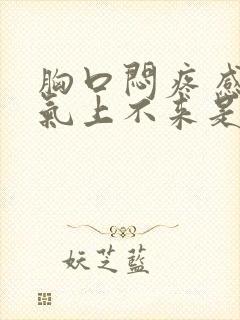 胸口悶疼感
氣上不来是
妖芝藍